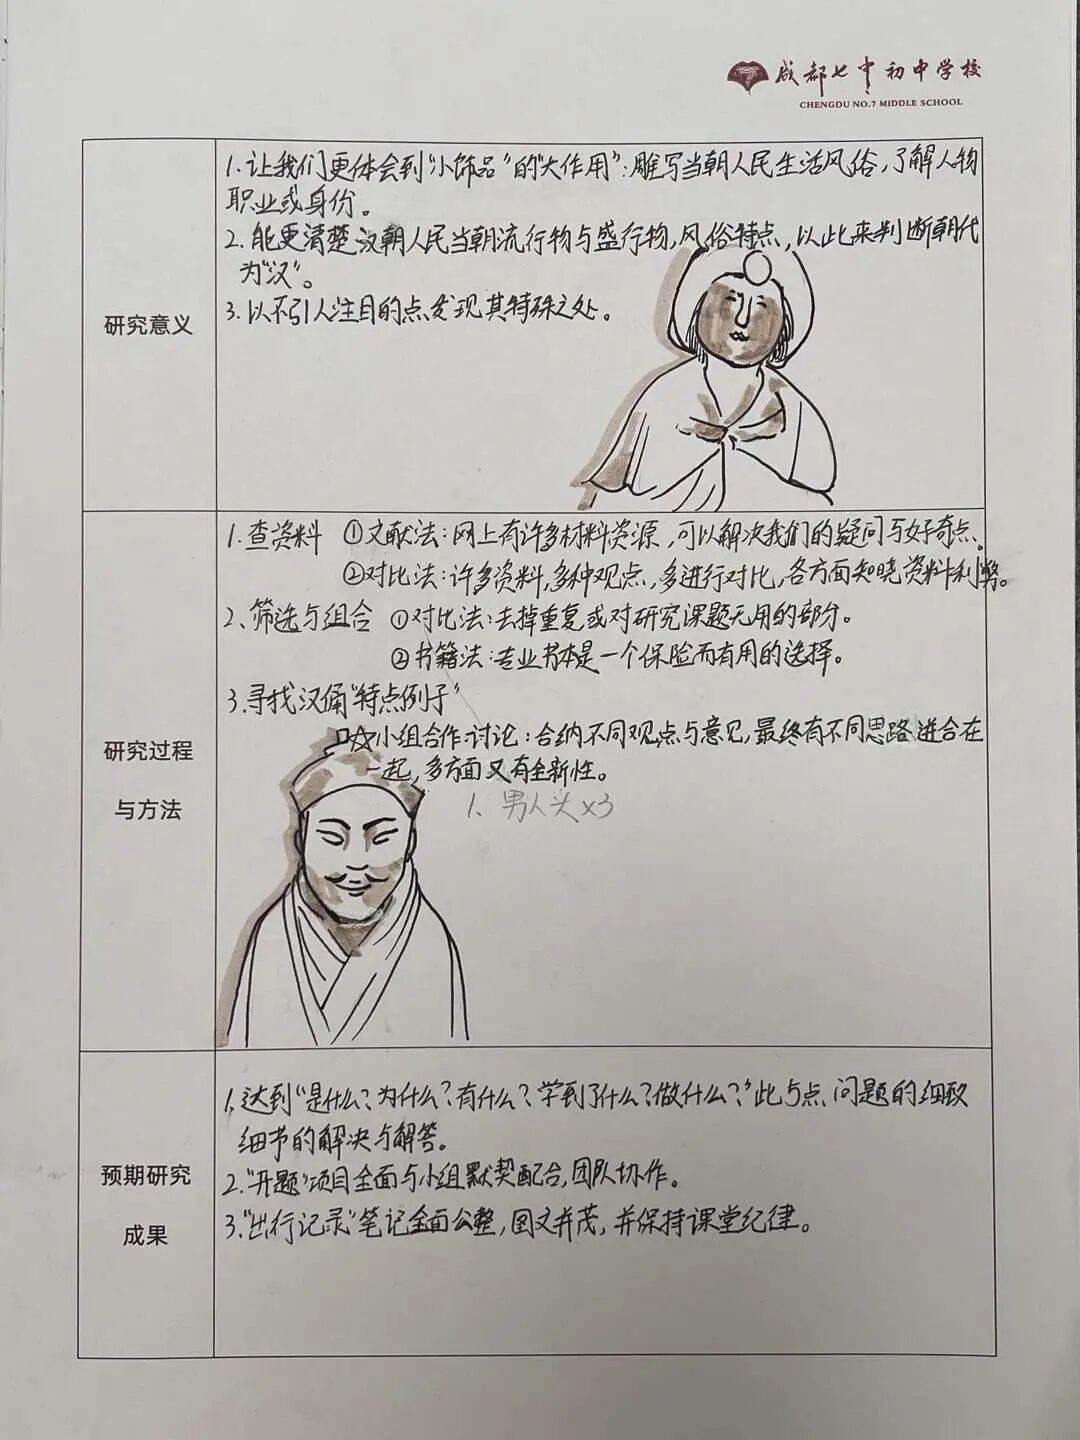 成都七中初中学校
CHENGDU NO.7 MIDDLE SCHOOL
研究意义
1.让我们更体会到“小饰品”的“大作用”：雕写当朝人民生活风俗，了解人物
职业或身份。
2.能更清楚汉朝人民当朝流行物与盛行物，风俗特点，以此来判断朝代
为“汉”。
3.以不引人注目的点发现其特殊之处。
研究过程
与方法
1.查资料 ①文献法：网上有许多材料资源，可以解决我们的疑问与好奇点。
②对比法：许多资料，多种观点，多进行对比，各方面知晓资料利弊。
2、筛选与组合 ①对比法：去掉重复或对研究课题无用的部分。
②书籍法：专业书本是一个保险而有用的选择。
3.寻找汉俑“特点例子”
☆小组合作讨论：合纳不同观点与意见，最终有不同思路进合在
一起，多方面又有全新性。
1、男人头×3
预期研究
成果
1.达到“是什么？为什么？有什么？学到了什么？做什么？”此5点问题的细致
细节的解决与解答。
2.“开题”项目全面与小组默契配合，团队协作。
3.“出行记录”笔记全面公整，图文并茂，并保持课堂纪律。